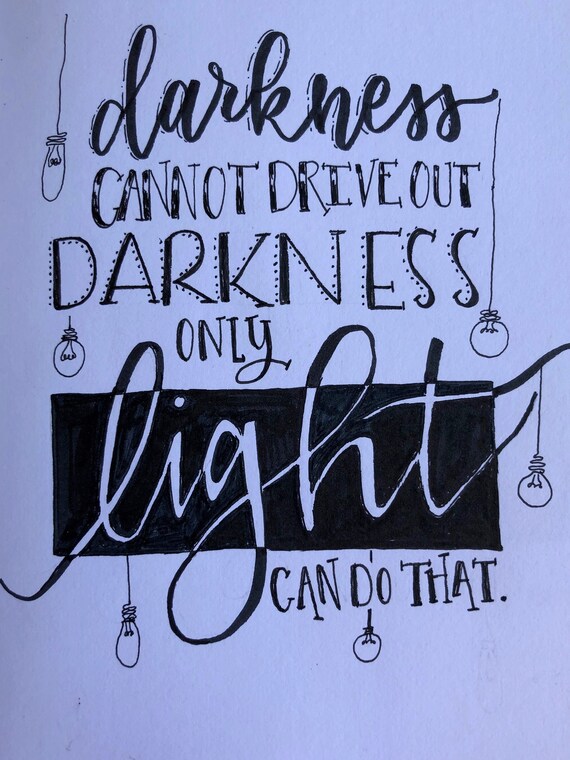 darkness
CANNOT DRIVE OUT
DARKNESS
ONLY
light
CAN DO THAT.